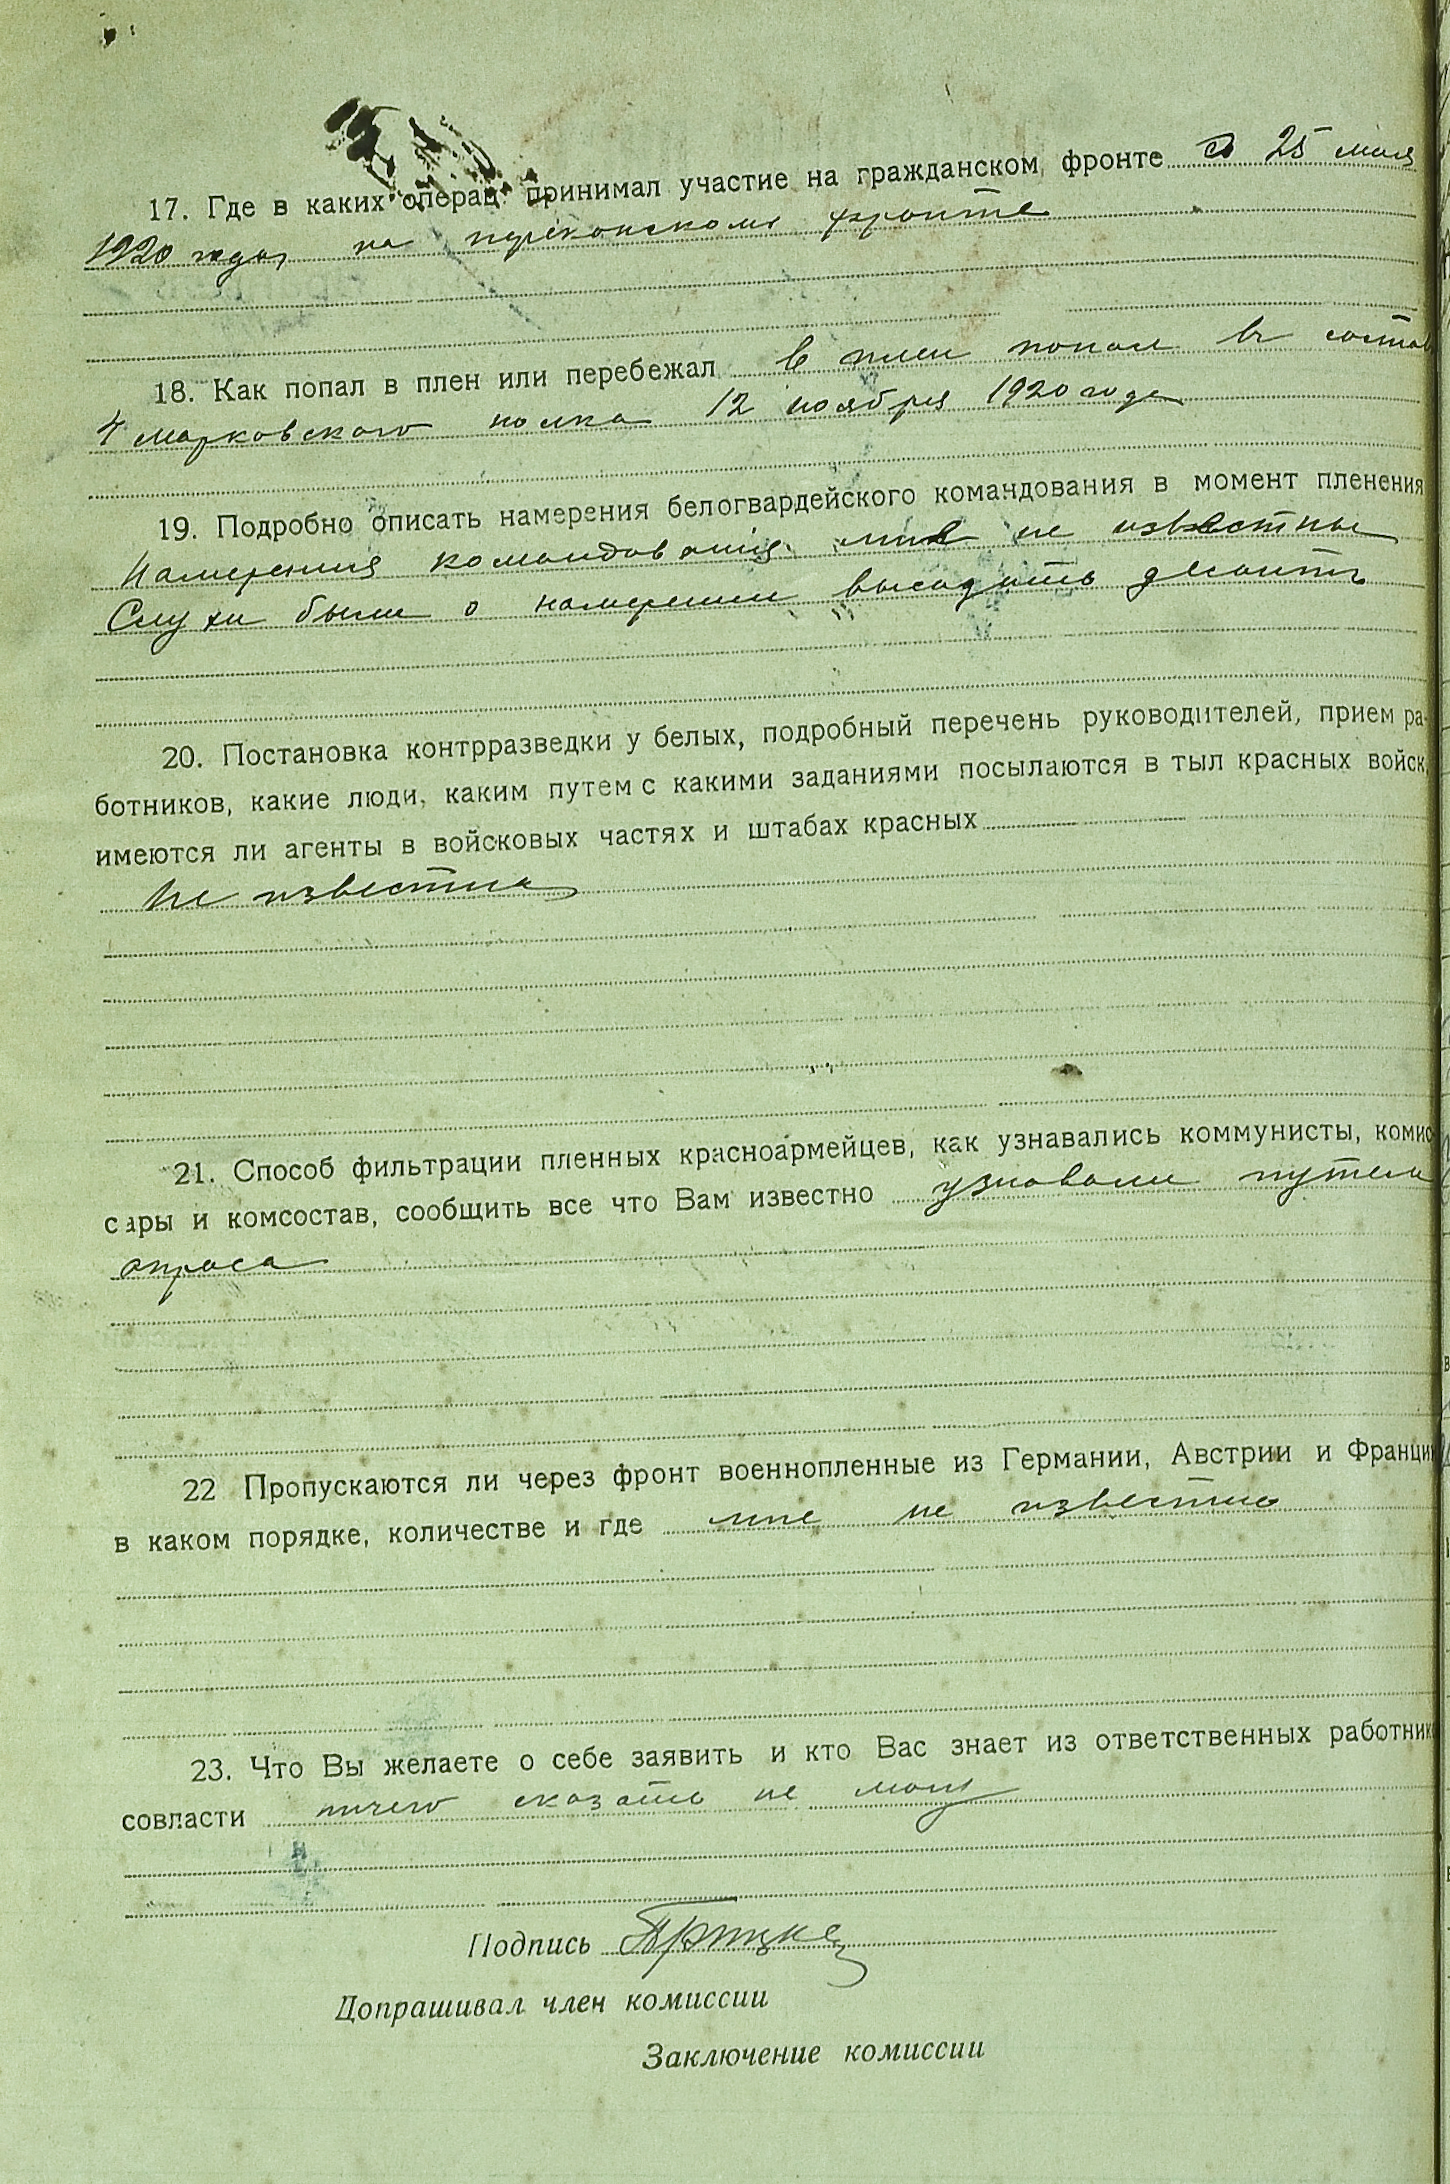 17. Где в каких операц принимал участие на гражданском фронте с 25 мая
1920 года на перекопском фронте
18. Как попал в плен или перебежал в плен попал въ состав
4 марковского полка 12 ноября 1920 года
19. Подробно описать намерения белогвардейского командования в момент пленения
Намерения командования мне не известны
Слухи были о намерении высадить десантъ
20. Постановка контрразведки у белых, подробный перечень руководителей, прием ра-
ботников, какие люди, каким путем с какими заданиями посылаются в тыл красных войск,
имеются ли агенты в войсковых частях и штабах красных
Не известна
21. Способ фильтрации пленных красноармейцев, как узнавались коммунисты, комис
сары и комсостав, сообщить все что Вам известно узновали путем
опроса
22 Пропускаются ли через фронт военнопленные из Германии, Австрии и Франции
в каком порядке, количестве и где мне не известно
23. Что Вы желаете о себе заявить и кто Вас знает из ответственных работник
совласти ничего сказать не могу
Подпись
Допрашивал член комиссии
Заключение комиссии